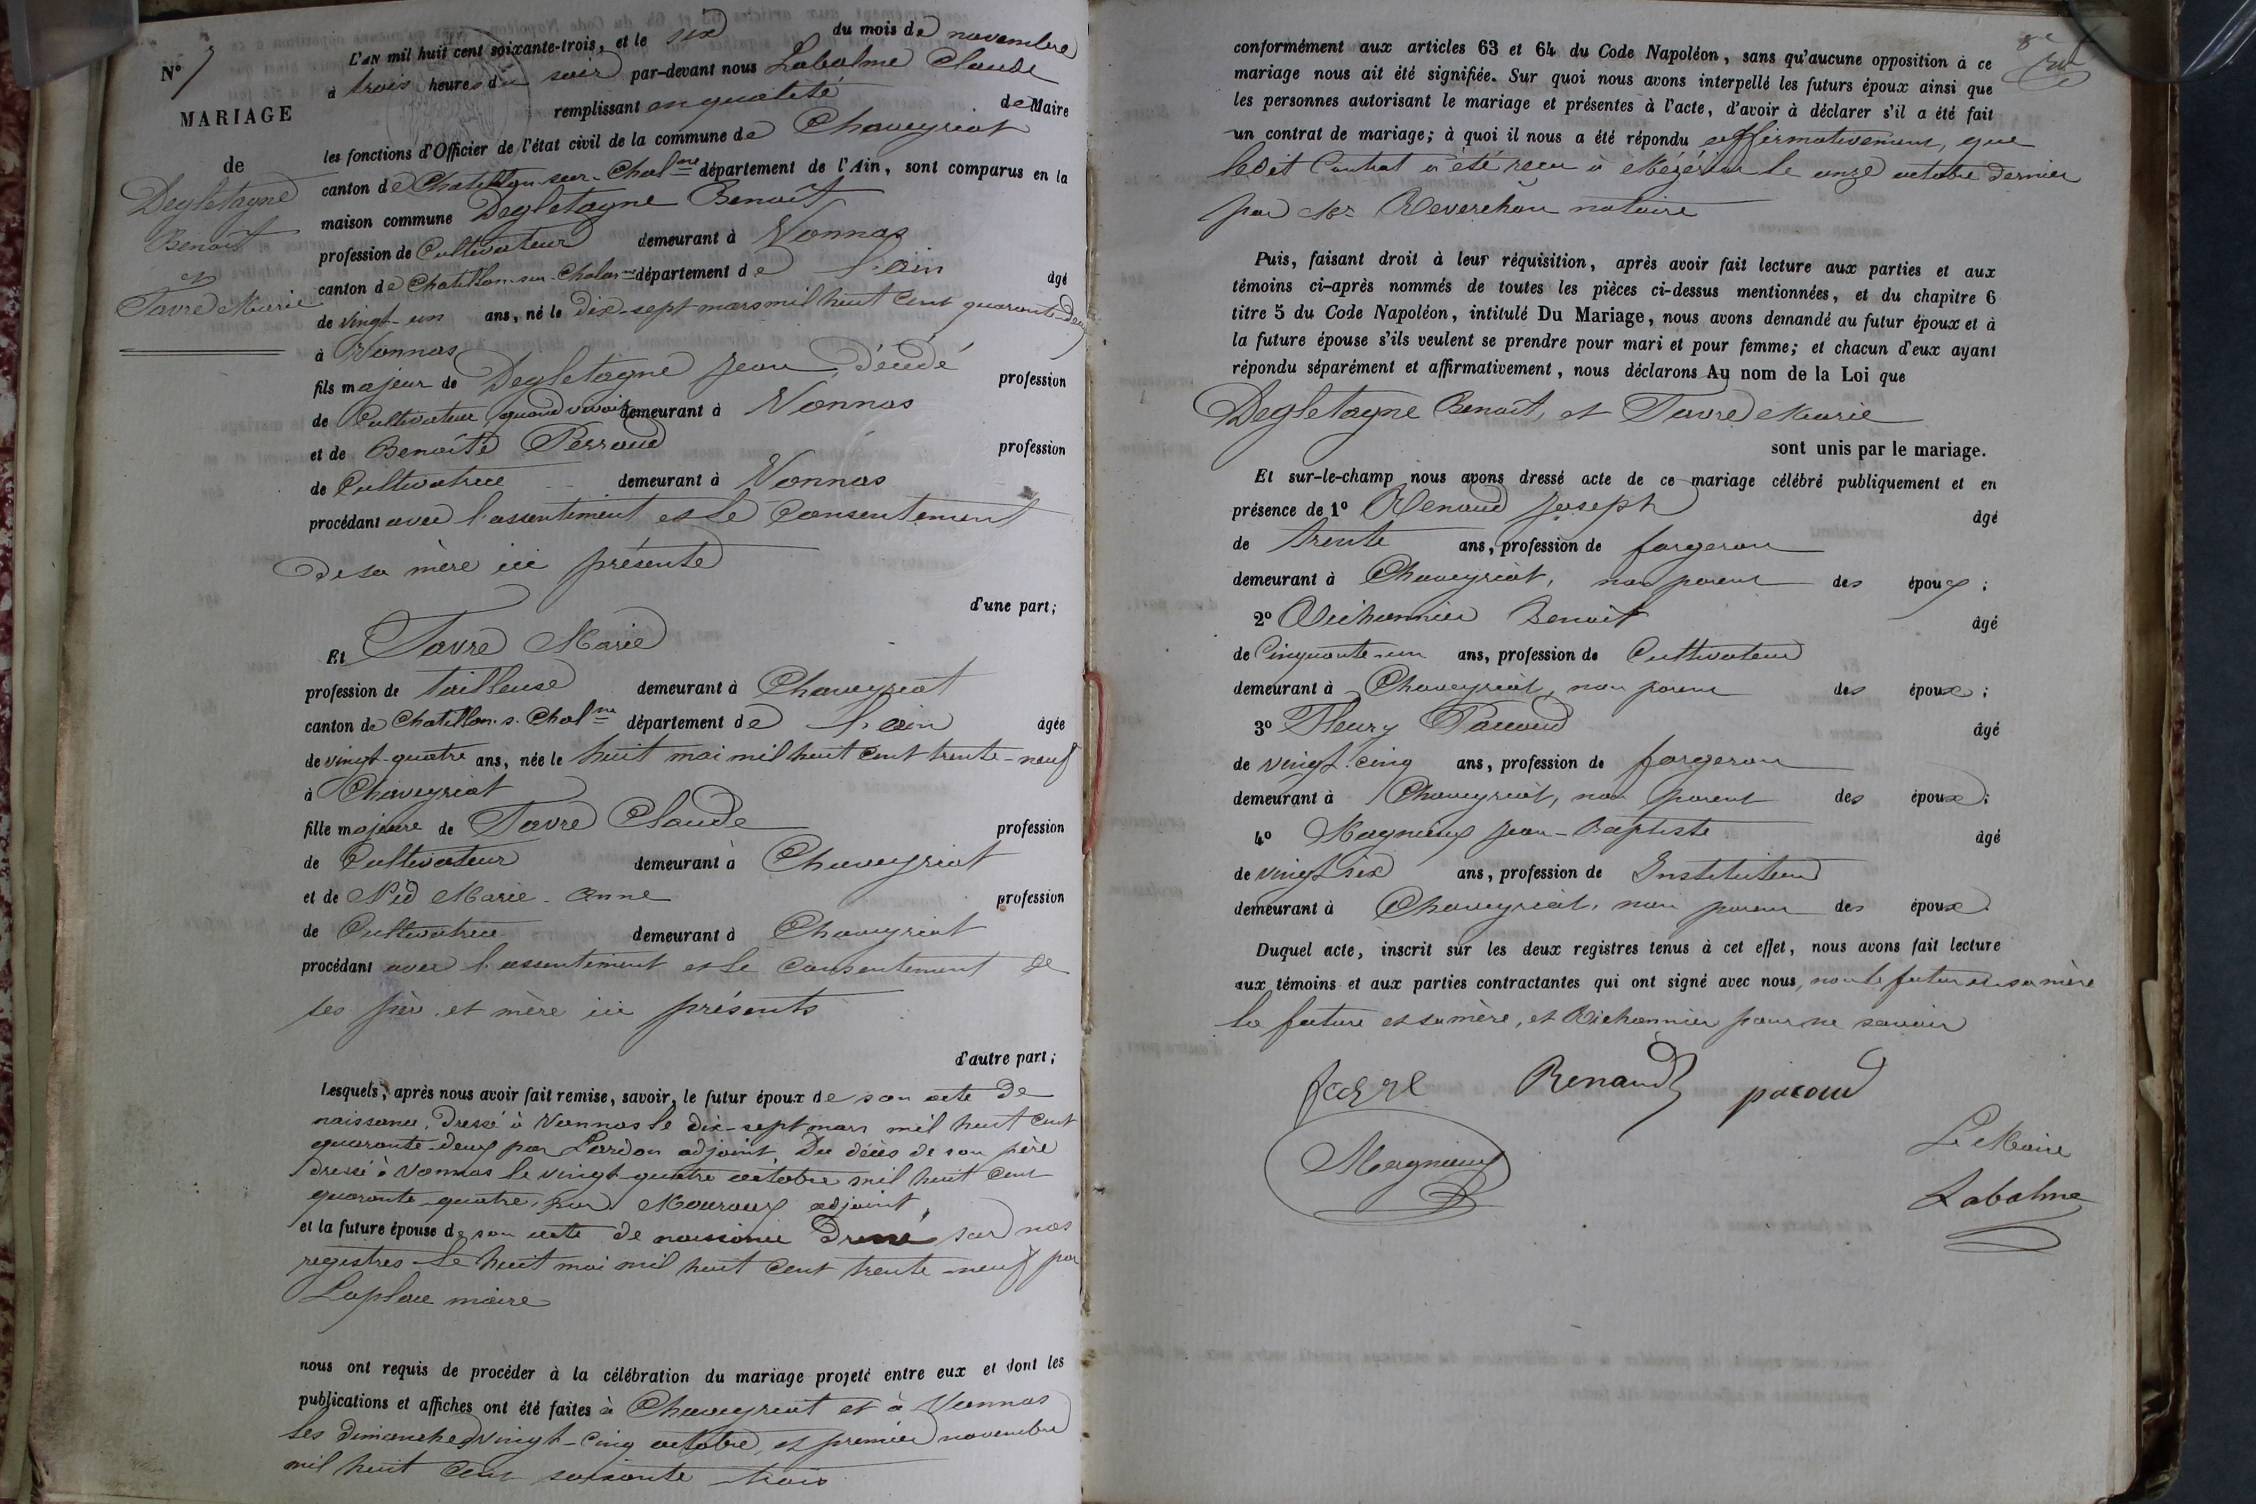 N° 7
MARIAGE
de
Degletagne
Benoît
et
Favre Marie
L'AN mil huit cent soixante-trois, et le six du mois de novembre
à trois heures du soir par-devant nous Labalme Claude
remplissant en qualité de Maire
les fonctions d'Officier de l'état civil de la commune de Chaveyriat
canton de Chatillon-sur-Chalne département de l'Ain, sont comparus en la
maison commune Degletagne Benoît
profession de Cultivateur demeurant à Vonnas
canton de Chatillon-sur-Chalarne département de l'ain âgé
de vingt-un ans, né le dix-sept mars mil huit cent quarante-deux
à Vonnas
fils majeur de Degletagne Jean, décédé profession
de Cultivateur, quand vivait demeurant à Vonnas
et de Benoîte Perraud profession
de Cultivatrice demeurant à Vonnas
procédant avec l'assentiment et le consentement
de sa mère ici présente
d'une part;
Et Favre Marie
profession de tailleuse demeurant à Chaveyriat
canton de Chatillon-s-Chalne département de l'ain âgée
de vingt-quatre ans, née le huit mai mil huit cent trente-neuf
à Chaveyriat
fille majeure de Favre Claude profession
de Cultivateur demeurant à Chaveyriat
et de Marie-Anne profession
de Cultivatrice demeurant à Chaveyriat
procédant avec l'assentiment et le consentement de
ses père et mère ici présents
d'autre part;
Lesquels, après nous avoir fait remise, savoir, le futur époux de son acte de
naissance, dressé à Vonnas le dix-sept mars mil huit cent
quarante-deux par Lardon adjoint, Du décès de son père
dressé à Vonnas le vingt-quatre octobre mil huit cent
quarante-quatre, par Mouroux adjoint,
et la future épouse de son acte de naissance dressé sur nos
registres le huit mai mil huit cent trente-neuf par
Laplace maire
nous ont requis de procéder à la célébration du mariage projeté entre eux et dont les
publications et affiches ont été faites à Chaveyriat et à Vonnas
les dimanches vingt-cinq octobre, et premier novembre
mil huit cent soixante trois
conformément aux articles 63 et 64 du Code Napoléon, sans qu'aucune opposition à ce
mariage nous ait été signifiée. Sur quoi nous avons interpellé les futurs époux ainsi que
les personnes autorisant le mariage et présentes à l'acte, d'avoir à déclarer s'il a été fait
un contrat de mariage; à quoi il nous a été répondu affirmativement, que
ledit Contrat a été reçu à Mézériat le onze octobre dernier
par Me Reverchon notaire
Puis, faisant droit à leur réquisition, après avoir fait lecture aux parties et aux
témoins ci-après nommés de toutes les pièces ci-dessus mentionnées, et du chapitre 6
titre 5 du Code Napoléon, intitulé Du Mariage, nous avons demandé au futur époux et à
la future épouse s'ils veulent se prendre pour mari et pour femme; et chacun d'eux ayant
répondu séparément et affirmativement, nous déclarons Au nom de la Loi que
Degletagne Benoît, et Favre Marie
sont unis par le mariage.
Et sur-le-champ nous avons dressé acte de ce mariage célébré publiquement et en
présence de 1° Renaud Joseph âgé
de trente ans, profession de forgeron
demeurant à Chaveyriat, non parent des époux;
2° Vichonnier Benoît âgé
de Cinquante-un ans, profession de Cultivateur
demeurant à Chaveyriat, non parent des époux;
3° Fleury Pacoud âgé
de vingt-cinq ans, profession de forgeron
demeurant à Chaveyriat, non parent des époux;
4° Magnieux Jean-Baptiste âgé
de vingt six ans, profession de Instituteur
demeurant à Chaveyriat, non parent des époux
Duquel acte, inscrit sur les deux registres tenus à cet effet, nous avons fait lecture
aux témoins et aux parties contractantes qui ont signé avec nous, non le futur et sa mère
la future et sa mère, et Vichonnier pour ne savoir
favre Renaud pacoud
Magnieux
Le Maire
Labalme